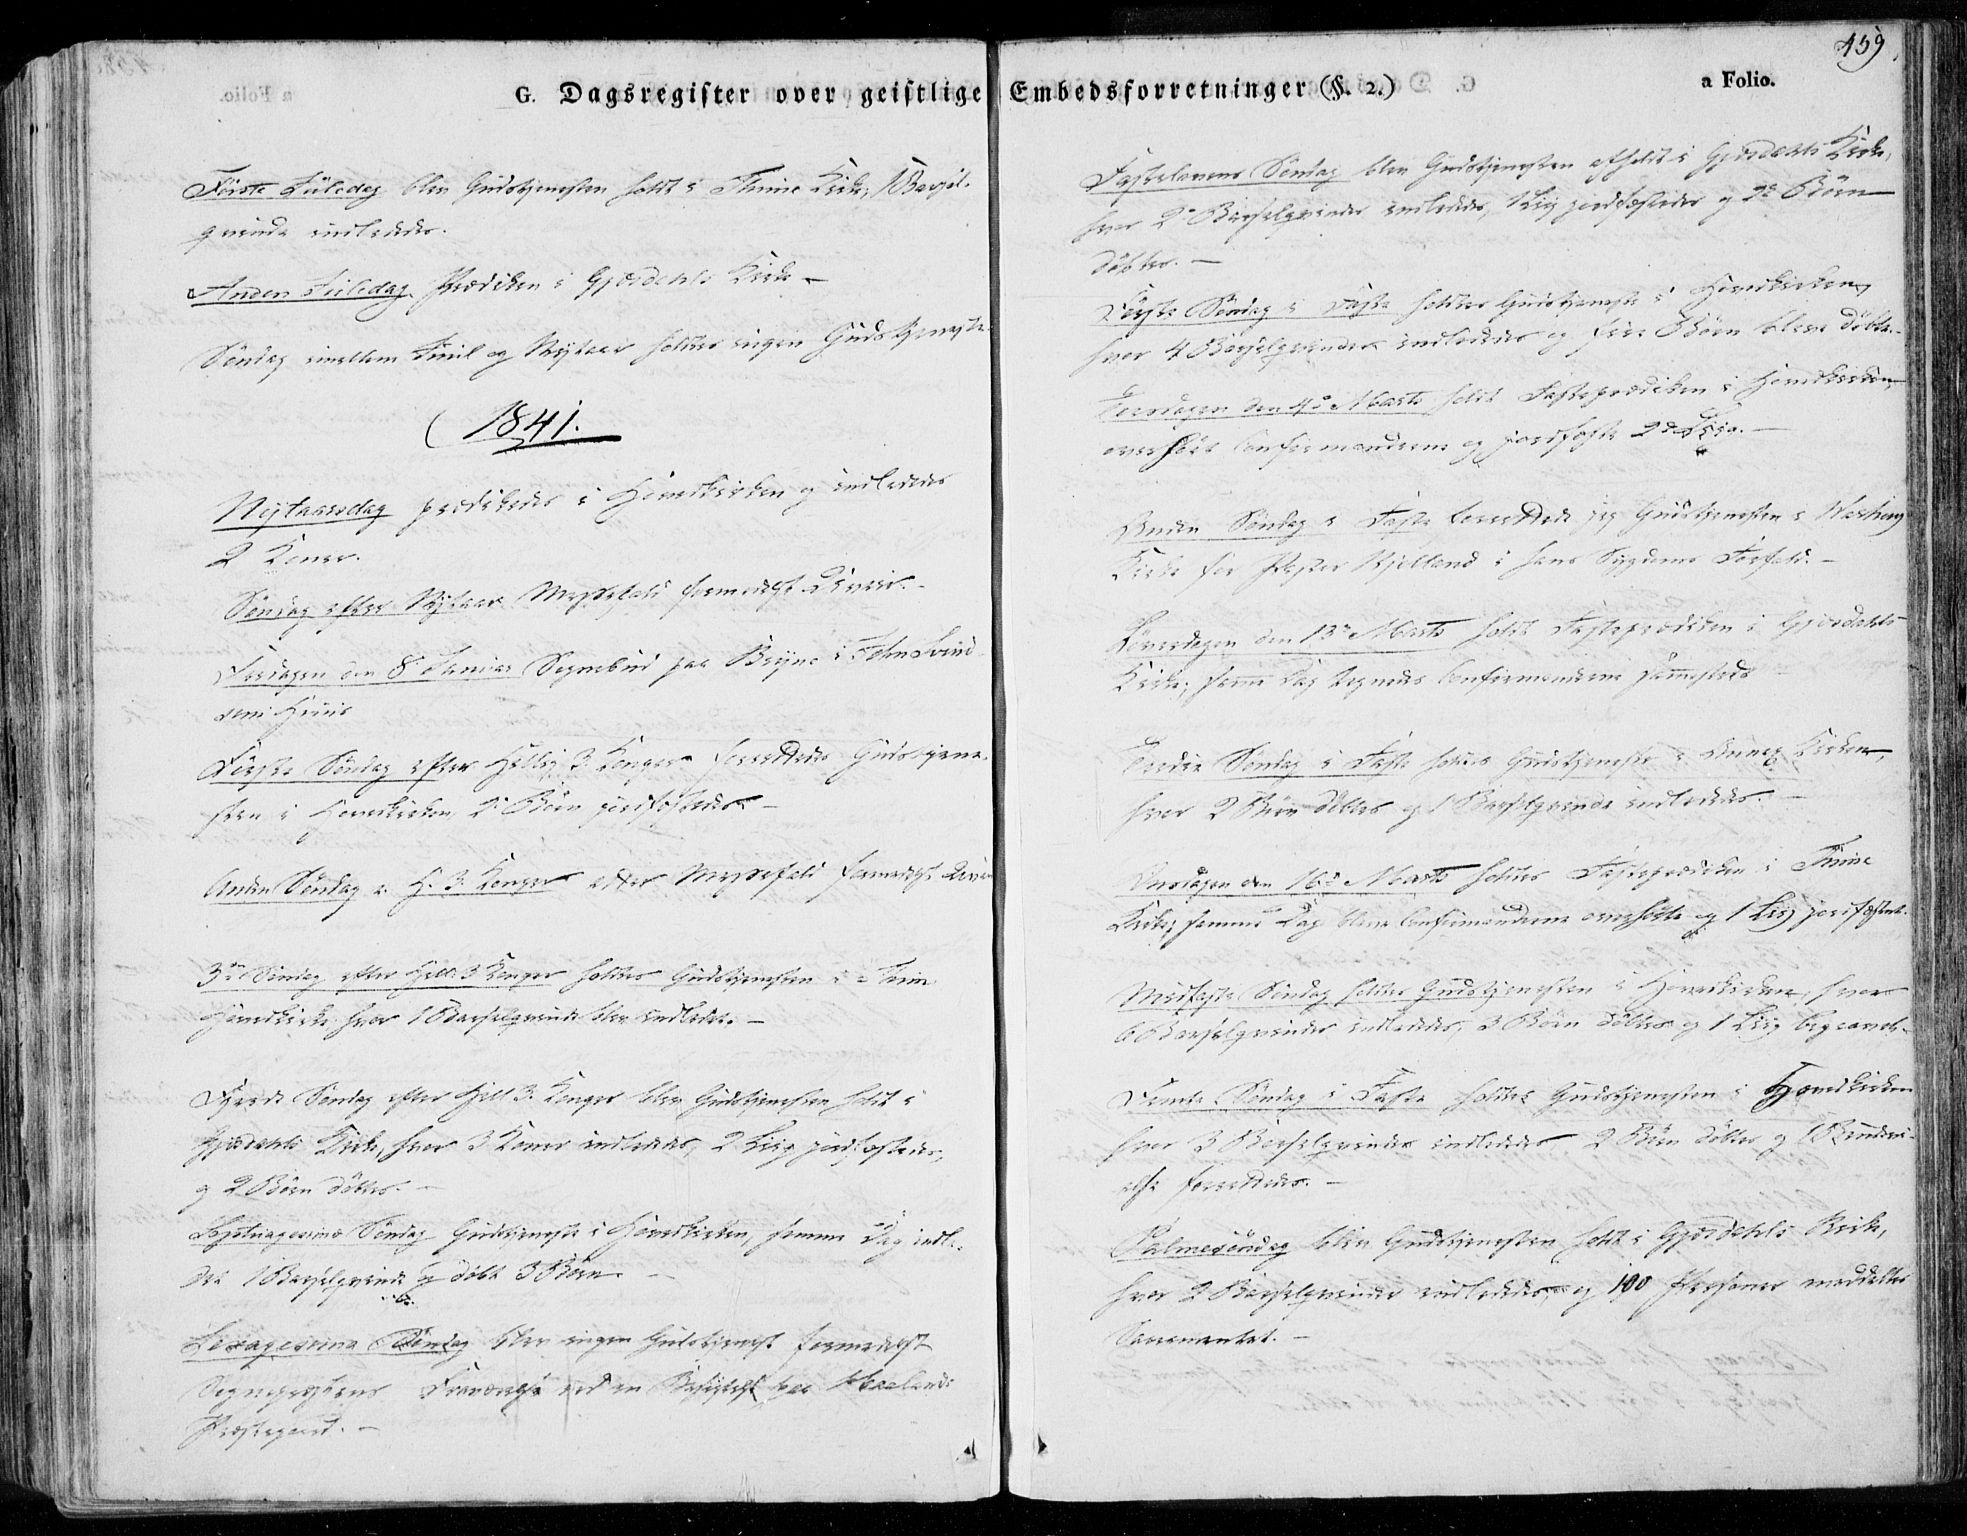 G. Dagsregister over geistlige Embedsforretninger (§. 2.)
a Folio.
459
Første Juledag blev Gudstjenesten holdt i Thime Kirke, 1 Barsel-
qvinde indlededes.
Anden Juledag Prædiken i Gjesdahls Kirke –
Søndag imellem Juul og Nytaar holdtes ingen Gudstjeneste
1841.
Nytaarsdag prædikedes i Hovedkirken og indlededes
2 Koner.
Søndag efter Nytaar Messefald formedelst Uveir. –
Fredagen den 8de Januar Sognebud paa Bryne i
Huus
Første Søndag efter Hellig 3 Konger forrettedes Gudstjene-
sten i Hovedkirken 2de Børn jordfæstedes –
Anden Søndag e. H. 3 Konger atter Messefald formedelst Uveir
3die Søndag efter Hell. 3 Konger holdtes Gudstjenesten i Thime
Hovedkirke hvor 1 Barselqvinde blev indledet. –
Fjerde Søndag efter Hell. 3 Konger blev Gudstjenesten holdt i
Gjesdahls Kirke, hvor 3 Koner indlededes, 2 Liig jordfæstedes,
og 2 Børn døbtes. –
Septuagesima Søndag Gudstjeneste i Hovedkirken, samme Dag indle-
det 1 Barselqvinde og døbt 3 Børn. –
Sexagesima Søndag blev ingen Gudstjenest formedelst
Sognepræstens Fraværelse ved en paa
Præstegaard. –
Fastelavens Søndag blev Gudstjenesten afholdt i Gjesdahls Kirke,
hvor 2de Barselqvinder indlededes, 1 Liig jordfæstedes og 2de Børn
døbtes. –
Første Søndag i Faste holdtes Gudstjeneste i Hovedkirken,
hvor 4 Barselqvinder indlededes og fire Børn bleve døbte. –
Torsdagen den 4de Marts holdt Fasteprædiken i Hovedkirken,
overhørt Confirmanderne og jordfæste 2de Liig. –
Anden Søndag i Faste forrettede jeg Gudstjenesten i
Kirke for Pastor Kjelland i hans Sygdoms Forfald. –
Løverdagen den 13de Marts holdt Fasteprædiken i Gjesdahls
Kirke; samme Dag Confirmanderne sammesteds
Tredie Søndag i Faste holdtes Gudstjeneste i Annex Kirken,
hvor 2 Børn døbtes og 1 Barselqvinde indlededes. –
Onsdagen den 16de Marts holdtes Fasteprædiken i Thime
Kirke; samme Dag bleve Confirmanderne overhørte og 1 Liig jordfæstet.
Midfaste Søndag holdtes Gudstjenesten i Hovedkirken, hvor
6 Barselqvinder indlededes, 3 Børn døbtes og 1 Liig begravet. –
Femte Søndag i Faste holdtes Gudstjenesten i Hovedkirken
hvor 3 Barselqvinder indlededes 2 Børn døbtes og 1
forrettedes. –
Palmesøndag blev Gudstjenesten holdt i Gjesdahls Kirke,
hvor 2 Barselqvinder indlededes, og 100 Personer meddeltes
Sacramentet. –